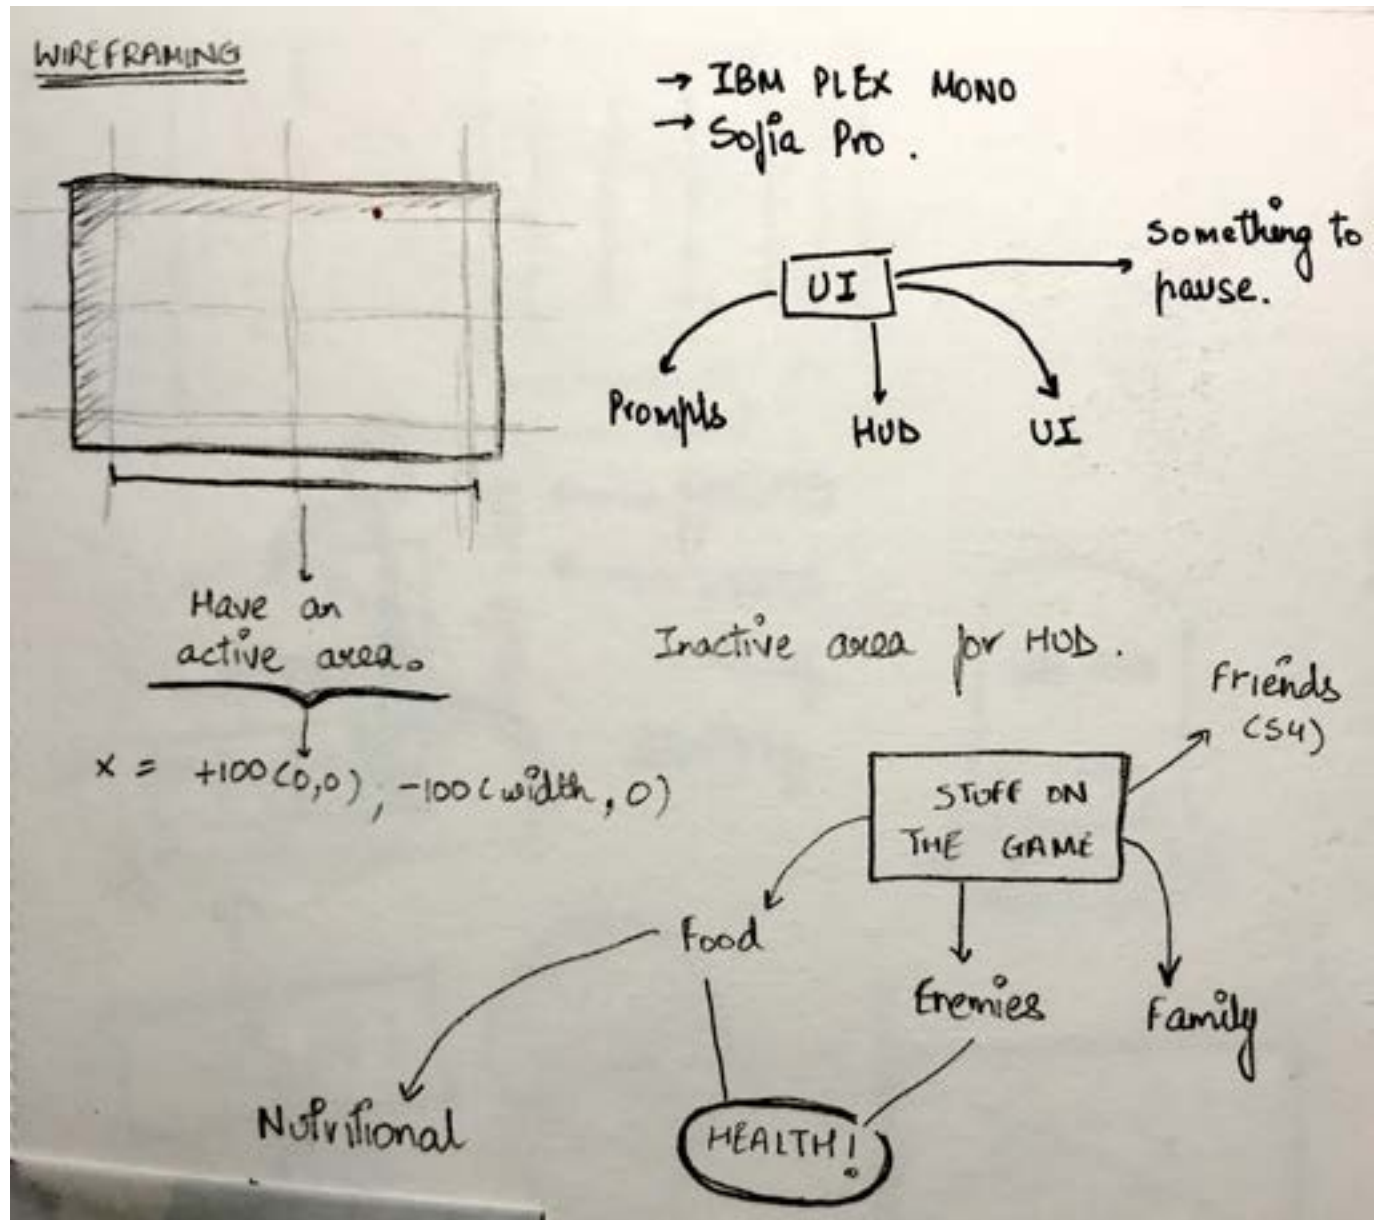 WIREFRAMING
→ IBM PLEX MONO
→ Sofia Pro.
UI
Something to
pause.
Prompts
HUD
UI
Have an
active area.
x = +100(0,0), -100(width, 0)
Inactive area for HUD.
STUFF ON
THE GAME
Friends
(S4)
Food
Enemies
Family
Nutritional
HEALTH!